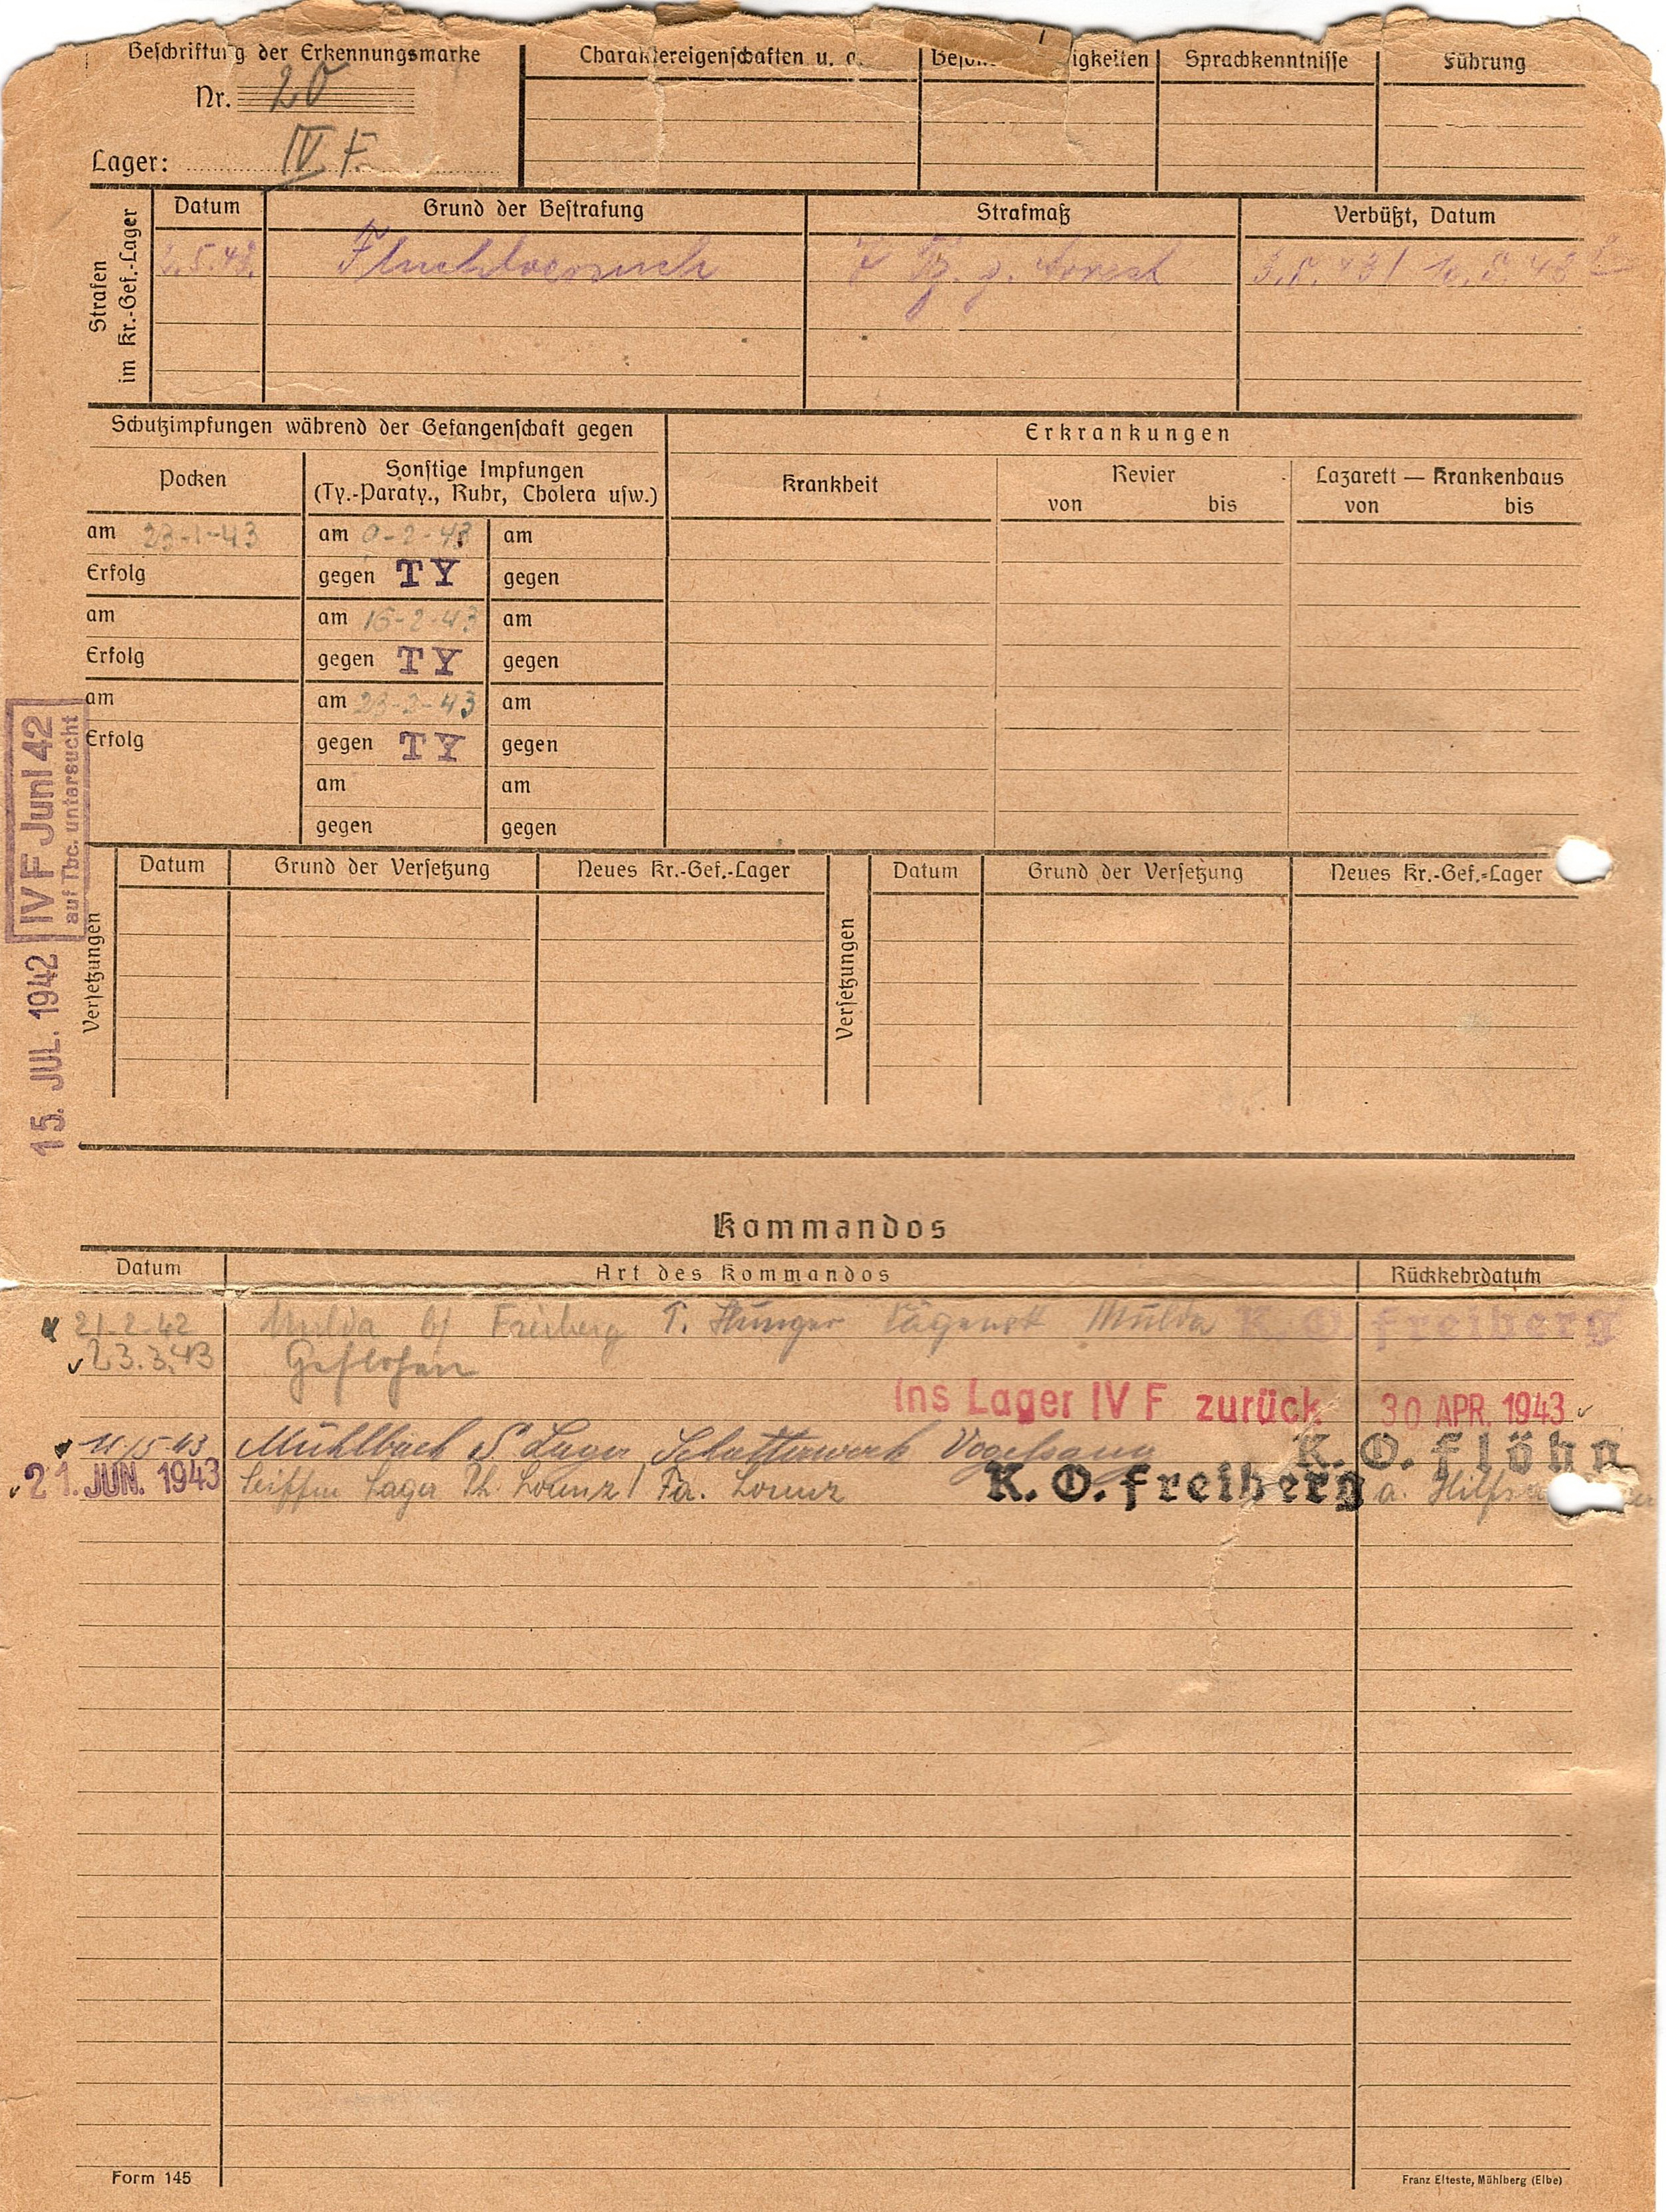 Beschriftung der Erkennungsmarke
Charaktereigenschaften u.
igkeiten
Sprachkenntnisse
Führung
Nr. 20
Lager: IV F.
Strafen
im Kr.-Gef.-Lager
Datum
Grund der Bestrafung
Strafmaß
Verbüßt, Datum
5.43.
Fluchtversuch
7 Tg. g. Arrest
3.5.43 / 10.5.43
Schutzimpfungen während der Gefangenschaft gegen
Erkrankungen
Pocken
Sonstige Impfungen
(Ty.-Paraty., Ruhr, Cholera usw.)
Krankheit
Revier
von bis
Lazarett — Krankenhaus
von bis
am 23-1-43 am 9-2-43 am
Erfolg gegen TY gegen
am am 16-2-43 am
Erfolg gegen TY gegen
am am 23-2-43 am
Erfolg gegen TY gegen
am am
gegen gegen
IV F Juni 42
auf Tbc. untersucht
15. JUL. 1942
Versetzungen
Datum
Grund der Versetzung
Neues Kr.-Gef.-Lager
Versetzungen
Datum
Grund der Versetzung
Neues Kr.-Gef.-Lager
Kommandos
Datum
Art des Kommandos
Rückkehrdatum
21.2.42 Mulda b/ Freiberg T. Hunger Sägewerk Mulda K. O. Freiberg
23.3.43 Geflohen
Ins Lager IV F zurück 30 APR. 1943
11/5 43 Mühlbach S Lager Vogelsang K. O. Flöha
21. JUN. 1943 Seiffen Lager Th. Lorenz / Fa. Lorenz K. O. Freiberg a.
Form 145
Franz Elteste, Mühlberg (Elbe)